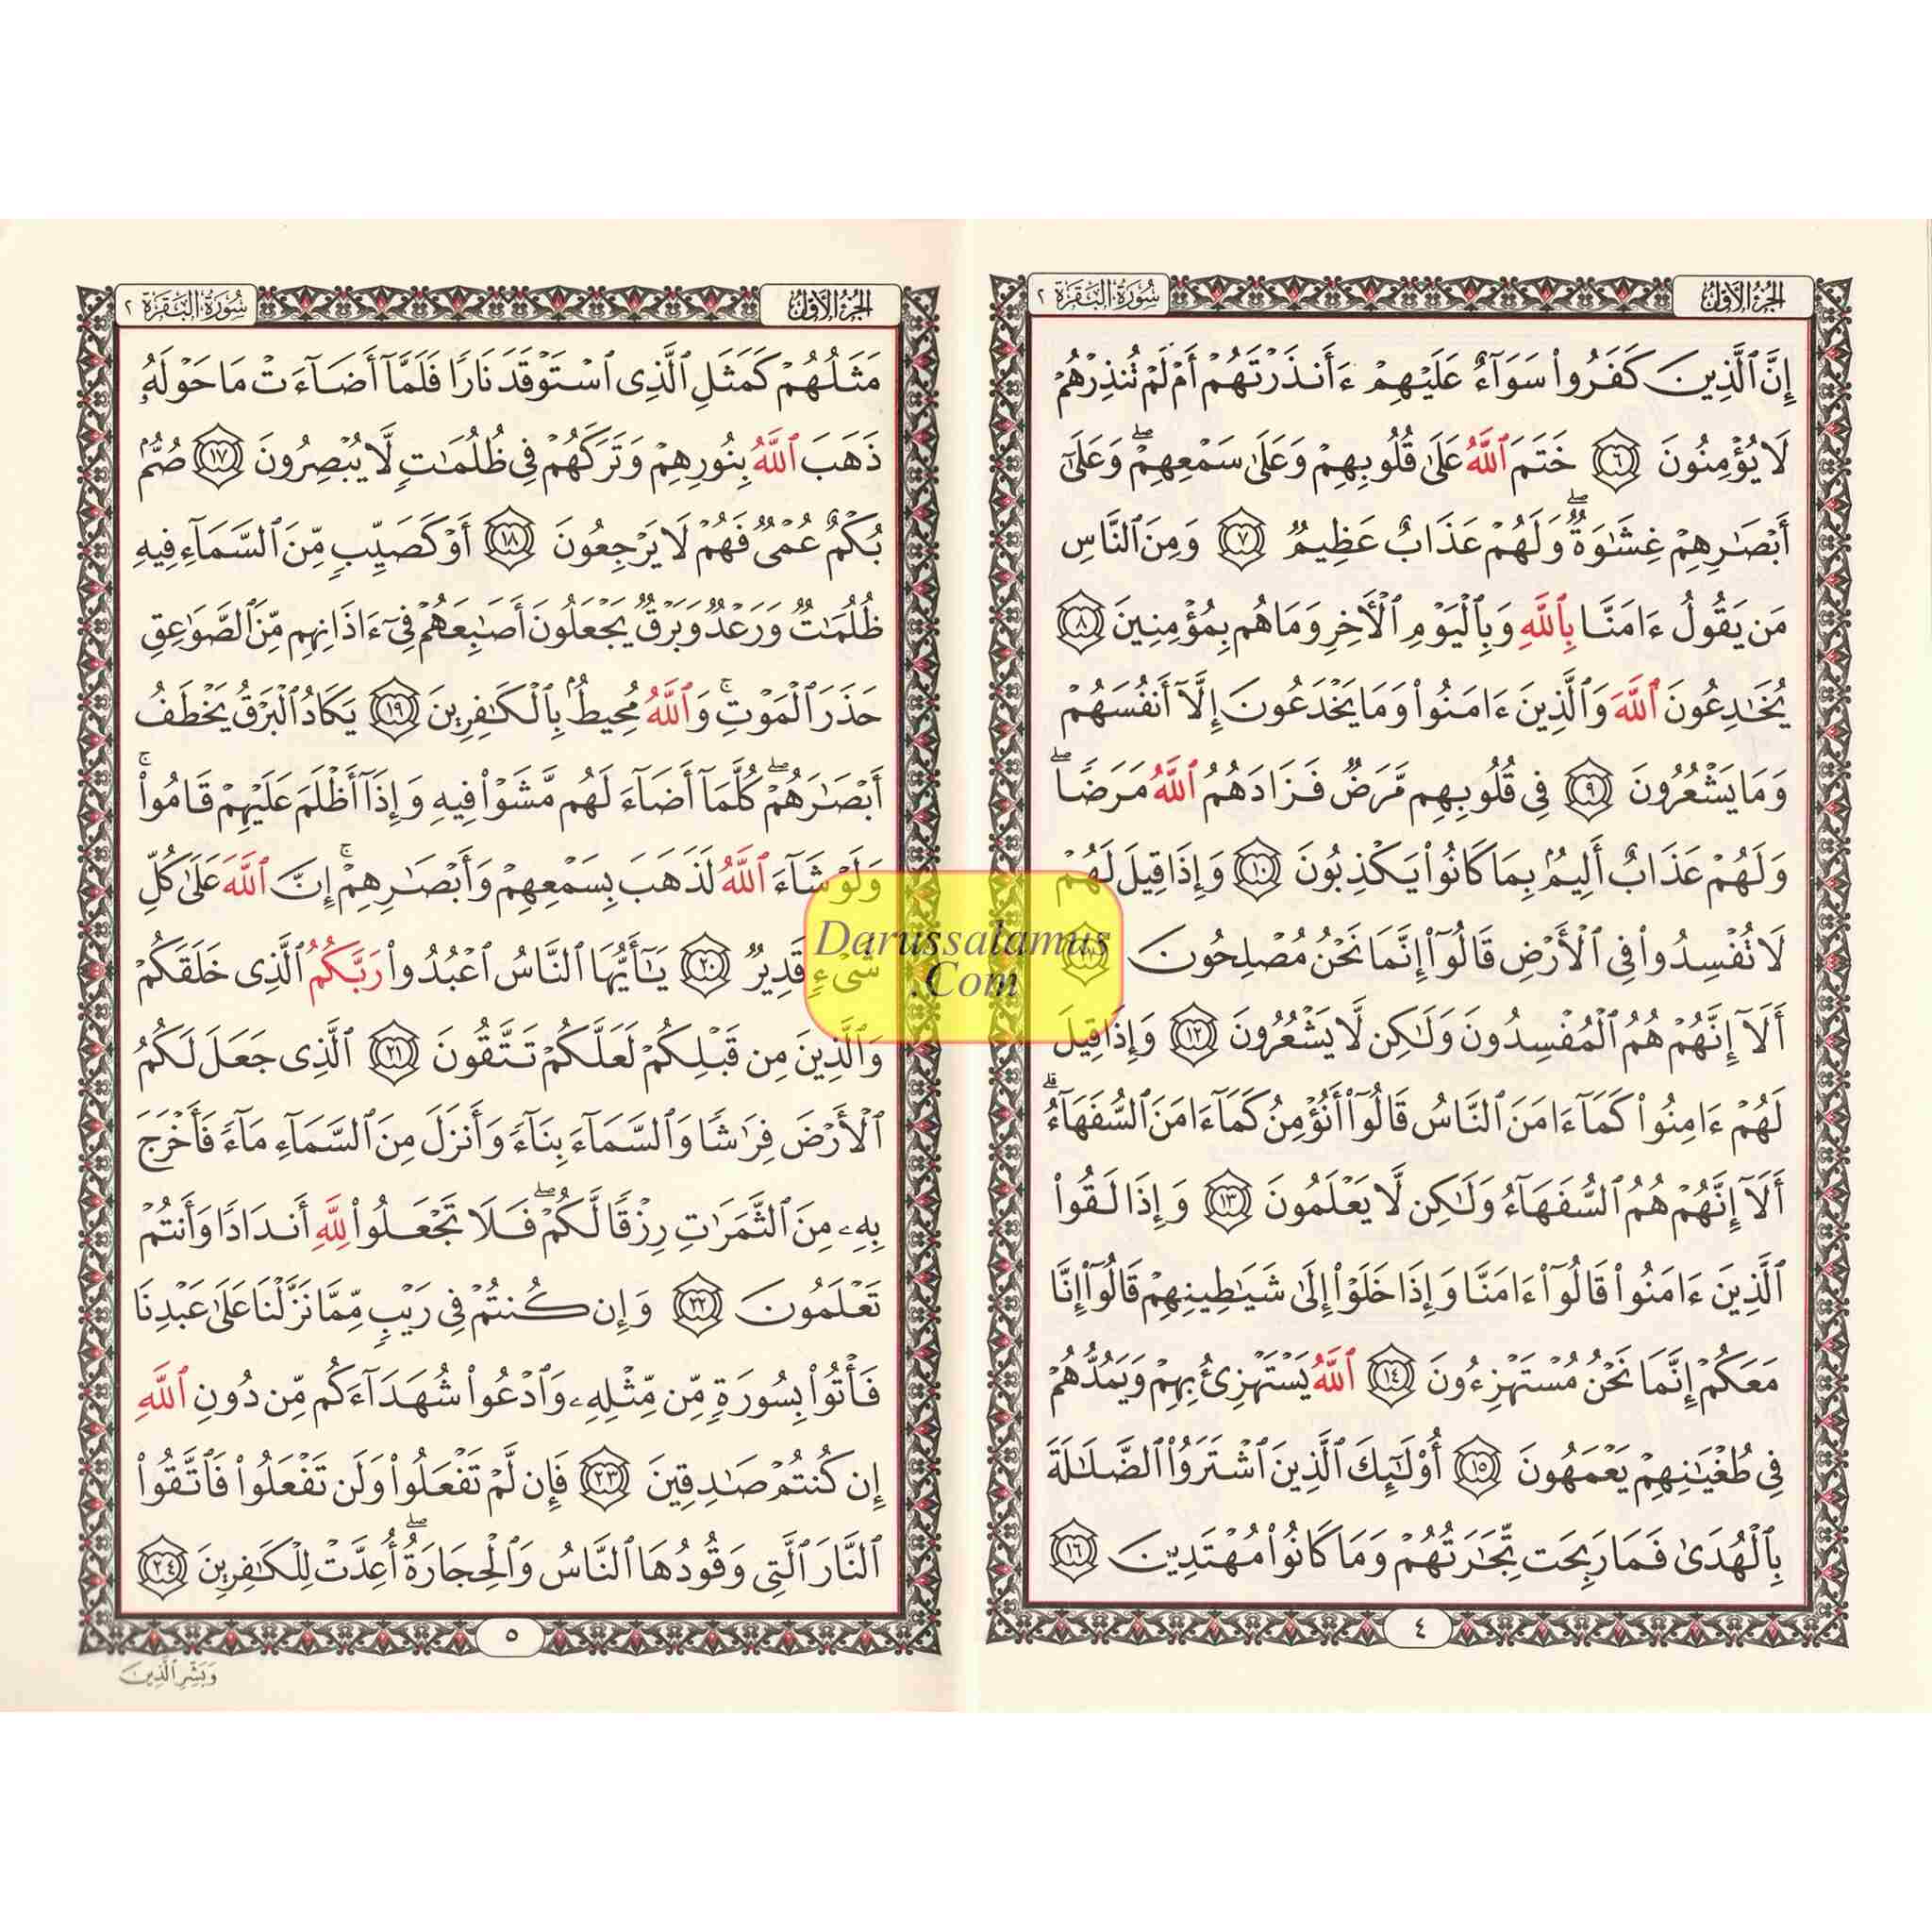 الجزء الأول
سورة البقرة ٢
إِنَّ ٱلَّذِينَ كَفَرُوا۟ سَوَآءٌ عَلَيْهِمْ ءَأَنذَرْتَهُمْ أَمْ لَمْ تُنذِرْهُمْ
لَا يُؤْمِنُونَ ٦ خَتَمَ ٱللَّهُ عَلَىٰ قُلُوبِهِمْ وَعَلَىٰ سَمْعِهِمْ ۖ وَعَلَىٰٓ
أَبْصَٰرِهِمْ غِشَٰوَةٌ ۖ وَلَهُمْ عَذَابٌ عَظِيمٌ ٧ وَمِنَ ٱلنَّاسِ
مَن يَقُولُ ءَامَنَّا بِٱللَّهِ وَبِٱلْيَوْمِ ٱلْءَاخِرِ وَمَا هُم بِمُؤْمِنِينَ ٨
يُخَٰدِعُونَ ٱللَّهَ وَٱلَّذِينَ ءَامَنُوا۟ وَمَا يَخْدَعُونَ إِلَّآ أَنفُسَهُمْ
وَمَا يَشْعُرُونَ ٩ فِى قُلُوبِهِم مَّرَضٌ فَزَادَهُمُ ٱللَّهُ مَرَضًا ۖ
وَلَهُمْ عَذَابٌ أَلِيمٌۢ بِمَا كَانُوا۟ يَكْذِبُونَ ١٠ وَإِذَا قِيلَ لَهُمْ
لَا تُفْسِدُوا۟ فِى ٱلْأَرْضِ قَالُوٓا۟ إِنَّمَا نَحْنُ مُصْلِحُونَ ١١
أَلَآ إِنَّهُمْ هُمُ ٱلْمُفْسِدُونَ وَلَٰكِن لَّا يَشْعُرُونَ ١٢ وَإِذَا قِيلَ
لَهُمْ ءَامِنُوا۟ كَمَآ ءَامَنَ ٱلنَّاسُ قَالُوٓا۟ أَنُؤْمِنُ كَمَآ ءَامَنَ ٱلسُّفَهَآءُ ۗ
أَلَآ إِنَّهُمْ هُمُ ٱلسُّفَهَآءُ وَلَٰكِن لَّا يَعْلَمُونَ ١٣ وَإِذَا لَقُوا۟
ٱلَّذِينَ ءَامَنُوا۟ قَالُوٓا۟ ءَامَنَّا وَإِذَا خَلَوْا۟ إِلَىٰ شَيَٰطِينِهِمْ قَالُوٓا۟ إِنَّا
مَعَكُمْ إِنَّمَا نَحْنُ مُسْتَهْزِءُونَ ١٤ ٱللَّهُ يَسْتَهْزِئُ بِهِمْ وَيَمُدُّهُمْ
فِى طُغْيَٰنِهِمْ يَعْمَهُونَ ١٥ أُو۟لَٰٓئِكَ ٱلَّذِينَ ٱشْتَرَوُا۟ ٱلضَّلَٰلَةَ
بِٱلْهُدَىٰ فَمَا رَبِحَت تِّجَٰرَتُهُمْ وَمَا كَانُوا۟ مُهْتَدِينَ ١٦
٤
الجزء الأول
سورة البقرة ٢
مَثَلُهُمْ كَمَثَلِ ٱلَّذِى ٱسْتَوْقَدَ نَارًا فَلَمَّآ أَضَآءَتْ مَا حَوْلَهُۥ
ذَهَبَ ٱللَّهُ بِنُورِهِمْ وَتَرَكَهُمْ فِى ظُلُمَٰتٍ لَّا يُبْصِرُونَ ١٧ صُمٌّۢ
بُكْمٌ عُمْىٌ فَهُمْ لَا يَرْجِعُونَ ١٨ أَوْ كَصَيِّبٍ مِّنَ ٱلسَّمَآءِ فِيهِ
ظُلُمَٰتٌ وَرَعْدٌ وَبَرْقٌ يَجْعَلُونَ أَصَٰبِعَهُمْ فِىٓ ءَاذَانِهِم مِّنَ ٱلصَّوَٰعِقِ
حَذَرَ ٱلْمَوْتِ ۚ وَٱللَّهُ مُحِيطٌۢ بِٱلْكَٰفِرِينَ ١٩ يَكَادُ ٱلْبَرْقُ يَخْطَفُ
أَبْصَٰرَهُمْ ۖ كُلَّمَآ أَضَآءَ لَهُم مَّشَوْا۟ فِيهِ وَإِذَآ أَظْلَمَ عَلَيْهِمْ قَامُوا۟ ۚ
وَلَوْ شَآءَ ٱللَّهُ لَذَهَبَ بِسَمْعِهِمْ وَأَبْصَٰرِهِمْ ۚ إِنَّ ٱللَّهَ عَلَىٰ كُلِّ
شَىْءٍ قَدِيرٌ ٢٠ يَٰٓأَيُّهَا ٱلنَّاسُ ٱعْبُدُوا۟ رَبَّكُمُ ٱلَّذِى خَلَقَكُمْ
وَٱلَّذِينَ مِن قَبْلِكُمْ لَعَلَّكُمْ تَتَّقُونَ ٢١ ٱلَّذِى جَعَلَ لَكُمُ
ٱلْأَرْضَ فِرَٰشًا وَٱلسَّمَآءَ بِنَآءً وَأَنزَلَ مِنَ ٱلسَّمَآءِ مَآءً فَأَخْرَجَ
بِهِۦ مِنَ ٱلثَّمَرَٰتِ رِزْقًا لَّكُمْ ۖ فَلَا تَجْعَلُوا۟ لِلَّهِ أَندَادًا وَأَنتُمْ
تَعْلَمُونَ ٢٢ وَإِن كُنتُمْ فِى رَيْبٍ مِّمَّا نَزَّلْنَا عَلَىٰ عَبْدِنَا
فَأْتُوا۟ بِسُورَةٍ مِّن مِّثْلِهِۦ وَٱدْعُوا۟ شُهَدَآءَكُم مِّن دُونِ ٱللَّهِ
إِن كُنتُمْ صَٰدِقِينَ ٢٣ فَإِن لَّمْ تَفْعَلُوا۟ وَلَن تَفْعَلُوا۟ فَٱتَّقُوا۟
ٱلنَّارَ ٱلَّتِى وَقُودُهَا ٱلنَّاسُ وَٱلْحِجَارَةُ ۖ أُعِدَّتْ لِلْكَٰفِرِينَ ٢٤
٥
وَبَشِّرِ ٱلَّذِينَ
Darussalamus
.Com